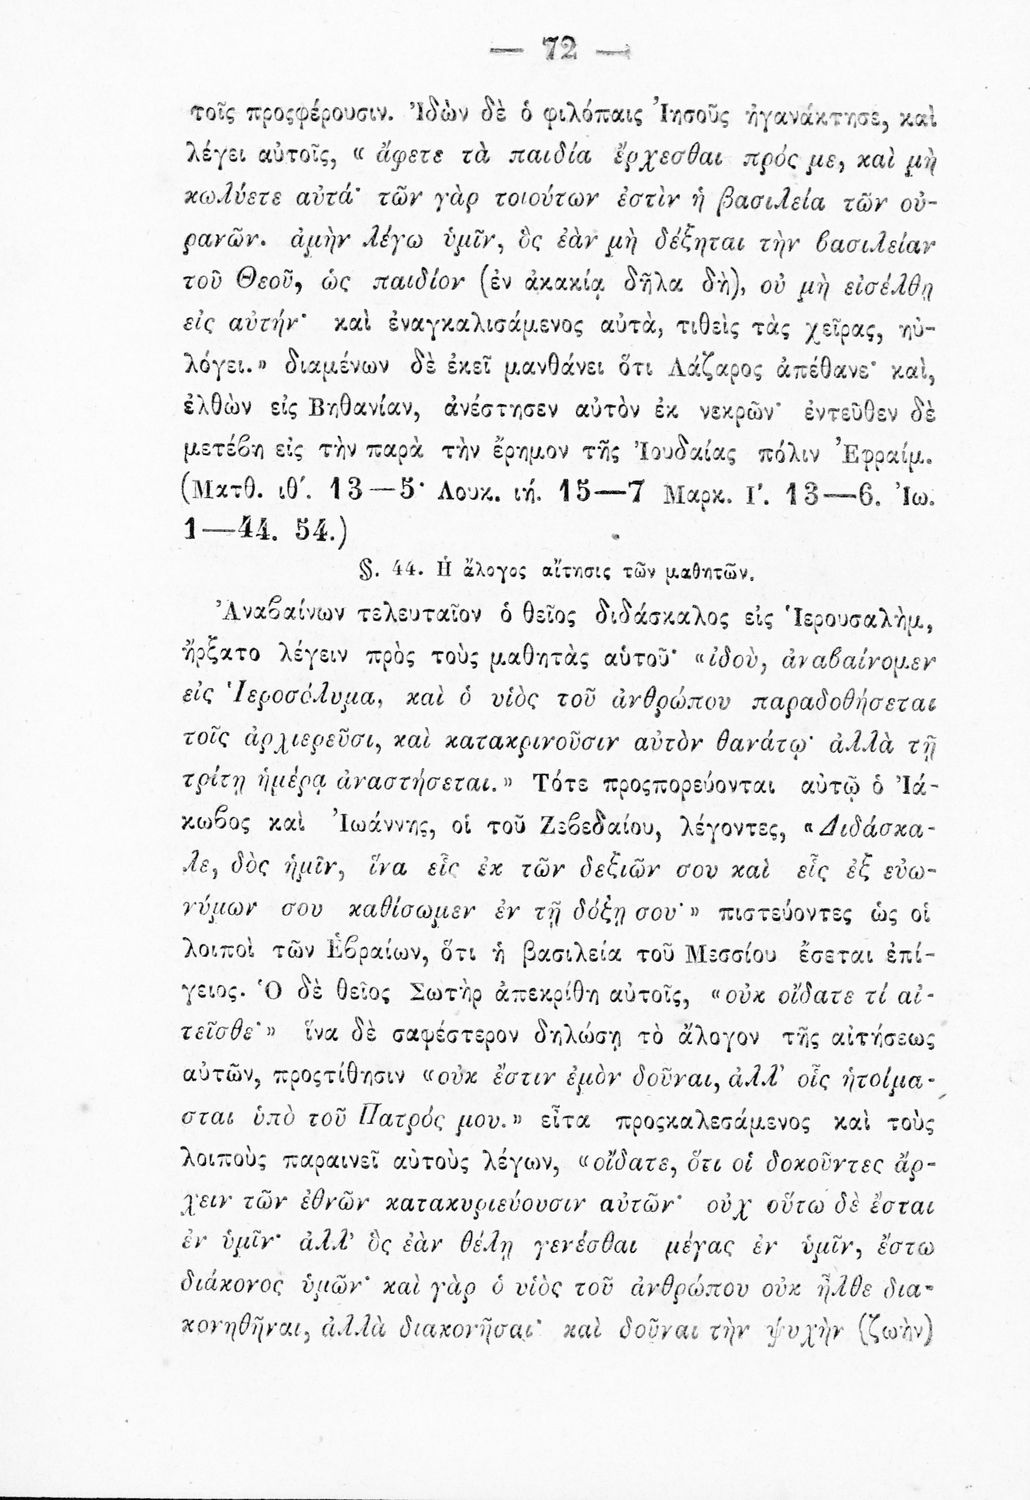 — 72 —
τοῖς προςφέρουσιν. Ἰδὼν δὲ ὁ φιλόπαις Ἰησοῦς ἠγανάκτησε, καὶ
λέγει αὐτοῖς, « ἄφετε τὰ παιδία ἔρχεσθαι πρός με, καὶ μὴ
κωλύετε αὐτά· τῶν γὰρ τοιούτων ἐστὶν ἡ βασιλεία τῶν οὐ-
ρανῶν. ἀμὴν λέγω ὑμῖν, ὃς ἐὰν μὴ δέξηται τὴν βασιλείαν
τοῦ Θεοῦ, ὡς παιδίον (ἐν ἀκακίᾳ δῆλα δὴ), οὐ μὴ εἰσέλθῃ
εἰς αὐτήν· καὶ ἐναγκαλισάμενος αὐτὰ, τιθεὶς τὰς χεῖρας, ηὐ-
λόγει.» διαμένων δὲ ἐκεῖ μανθάνει ὅτι Λάζαρος ἀπέθανε· καὶ,
ἐλθὼν εἰς Βηθανίαν, ἀνέστησεν αὐτὸν ἐκ νεκρῶν· ἐντεῦθεν δὲ
μετέβη εἰς τὴν παρὰ τὴν ἔρημον τῆς Ἰουδαίας πόλιν Ἐφραίμ.
(Ματθ. ιθ′. 13—5· Λουκ. ιή. 15—7 Μαρκ. Ι′. 13—6. Ἰω.
1—44. 54.)
§. 44. Ἡ ἄλογος αἴτησις τῶν μαθητῶν.
Ἀναβαίνων τελευταῖον ὁ θεῖος διδάσκαλος εἰς Ἱερουσαλὴμ,
ἤρξατο λέγειν πρὸς τοὺς μαθητὰς αὑτοῦ· «ἰδοὺ, ἀναβαίνομεν
εἰς Ἱεροσόλυμα, καὶ ὁ υἱὸς τοῦ ἀνθρώπου παραδοθήσεται
τοῖς ἀρχιερεῦσι, καὶ κατακρινοῦσιν αὐτὸν θανάτῳ· ἀλλὰ τῇ
τρίτῃ ἡμέρᾳ ἀναστήσεται.» Τότε προςπορεύονται αὐτῷ ὁ Ἰά-
κωβος καὶ Ἰωάννης, οἱ τοῦ Ζεβεδαίου, λέγοντες, «Διδάσκα-
λε, δὸς ἡμῖν, ἵνα εἷς ἐκ τῶν δεξιῶν σου καὶ εἷς ἐξ εὐω-
νύμων σου καθίσωμεν ἐν τῇ δόξῃ σου·» πιστεύοντες ὡς οἱ
λοιποὶ τῶν Ἑβραίων, ὅτι ἡ βασιλεία τοῦ Μεσσίου ἔσεται ἐπί-
γειος. Ὁ δὲ θεῖος Σωτὴρ ἀπεκρίθη αὐτοῖς, «οὐκ οἴδατε τί αἰ-
τεῖσθε·» ἵνα δὲ σαφέστερον δηλώσῃ τὸ ἄλογον τῆς αἰτήσεως
αὐτῶν, προςτίθησιν «οὐκ ἔστιν ἐμὸν δοῦναι, ἀλλ' οἷς ἡτοίμα-
σται ὑπὸ τοῦ Πατρός μου.» εἶτα προςκαλεσάμενος καὶ τοὺς
λοιποὺς παραινεῖ αὐτοὺς λέγων, «οἴδατε, ὅτι οἱ δοκοῦντες ἄρ-
χειν τῶν ἐθνῶν κατακυριεύουσιν αὐτῶν· οὐχ οὕτω δὲ ἔσται
ἐν ὑμῖν· ἀλλ' ὃς ἐὰν θέλῃ γενέσθαι μέγας ἐν ὑμῖν, ἔστω
διάκονος ὑμῶν· καὶ γὰρ ὁ υἱὸς τοῦ ἀνθρώπου οὐκ ἦλθε δια-
κονηθῆναι, ἀλλὰ διακονῆσαι· καὶ δοῦναι τὴν ψυχὴν (ζωὴν)